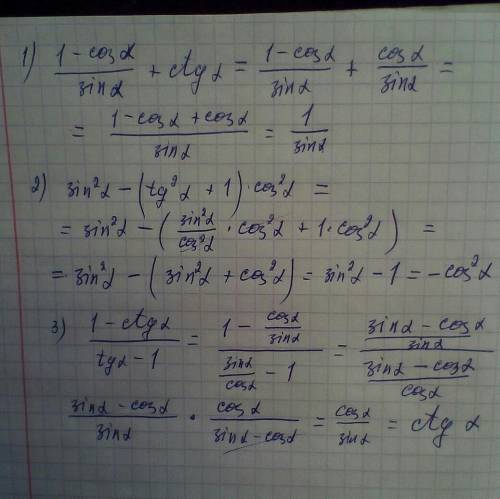 1) (1 - cos α)/(sin α) + ctg α = (1 - cos α)/(sin α) + (cos α)/(sin α) =
= (1 - cos α + cos α)/(sin α) = 1/(sin α)
2) sin²α - (tg²α + 1) · cos²α =
= sin²α - ((sin²α)/(cos²α) · cos²α + 1 · cos²α) =
= sin²α - (sin²α + cos²α) = sin²α - 1 = - cos²α
3) (1 - ctg α)/(tg α - 1) = (1 - (cos α)/(sin α))/((sin α)/(cos α) - 1) = ((sin α - cos α)/(sin α))/((sin α - cos α)/(cos α))
(sin α - cos α)/(sin α) · (cos α)/(sin α - cos α) = (cos α)/(sin α) = ctg α